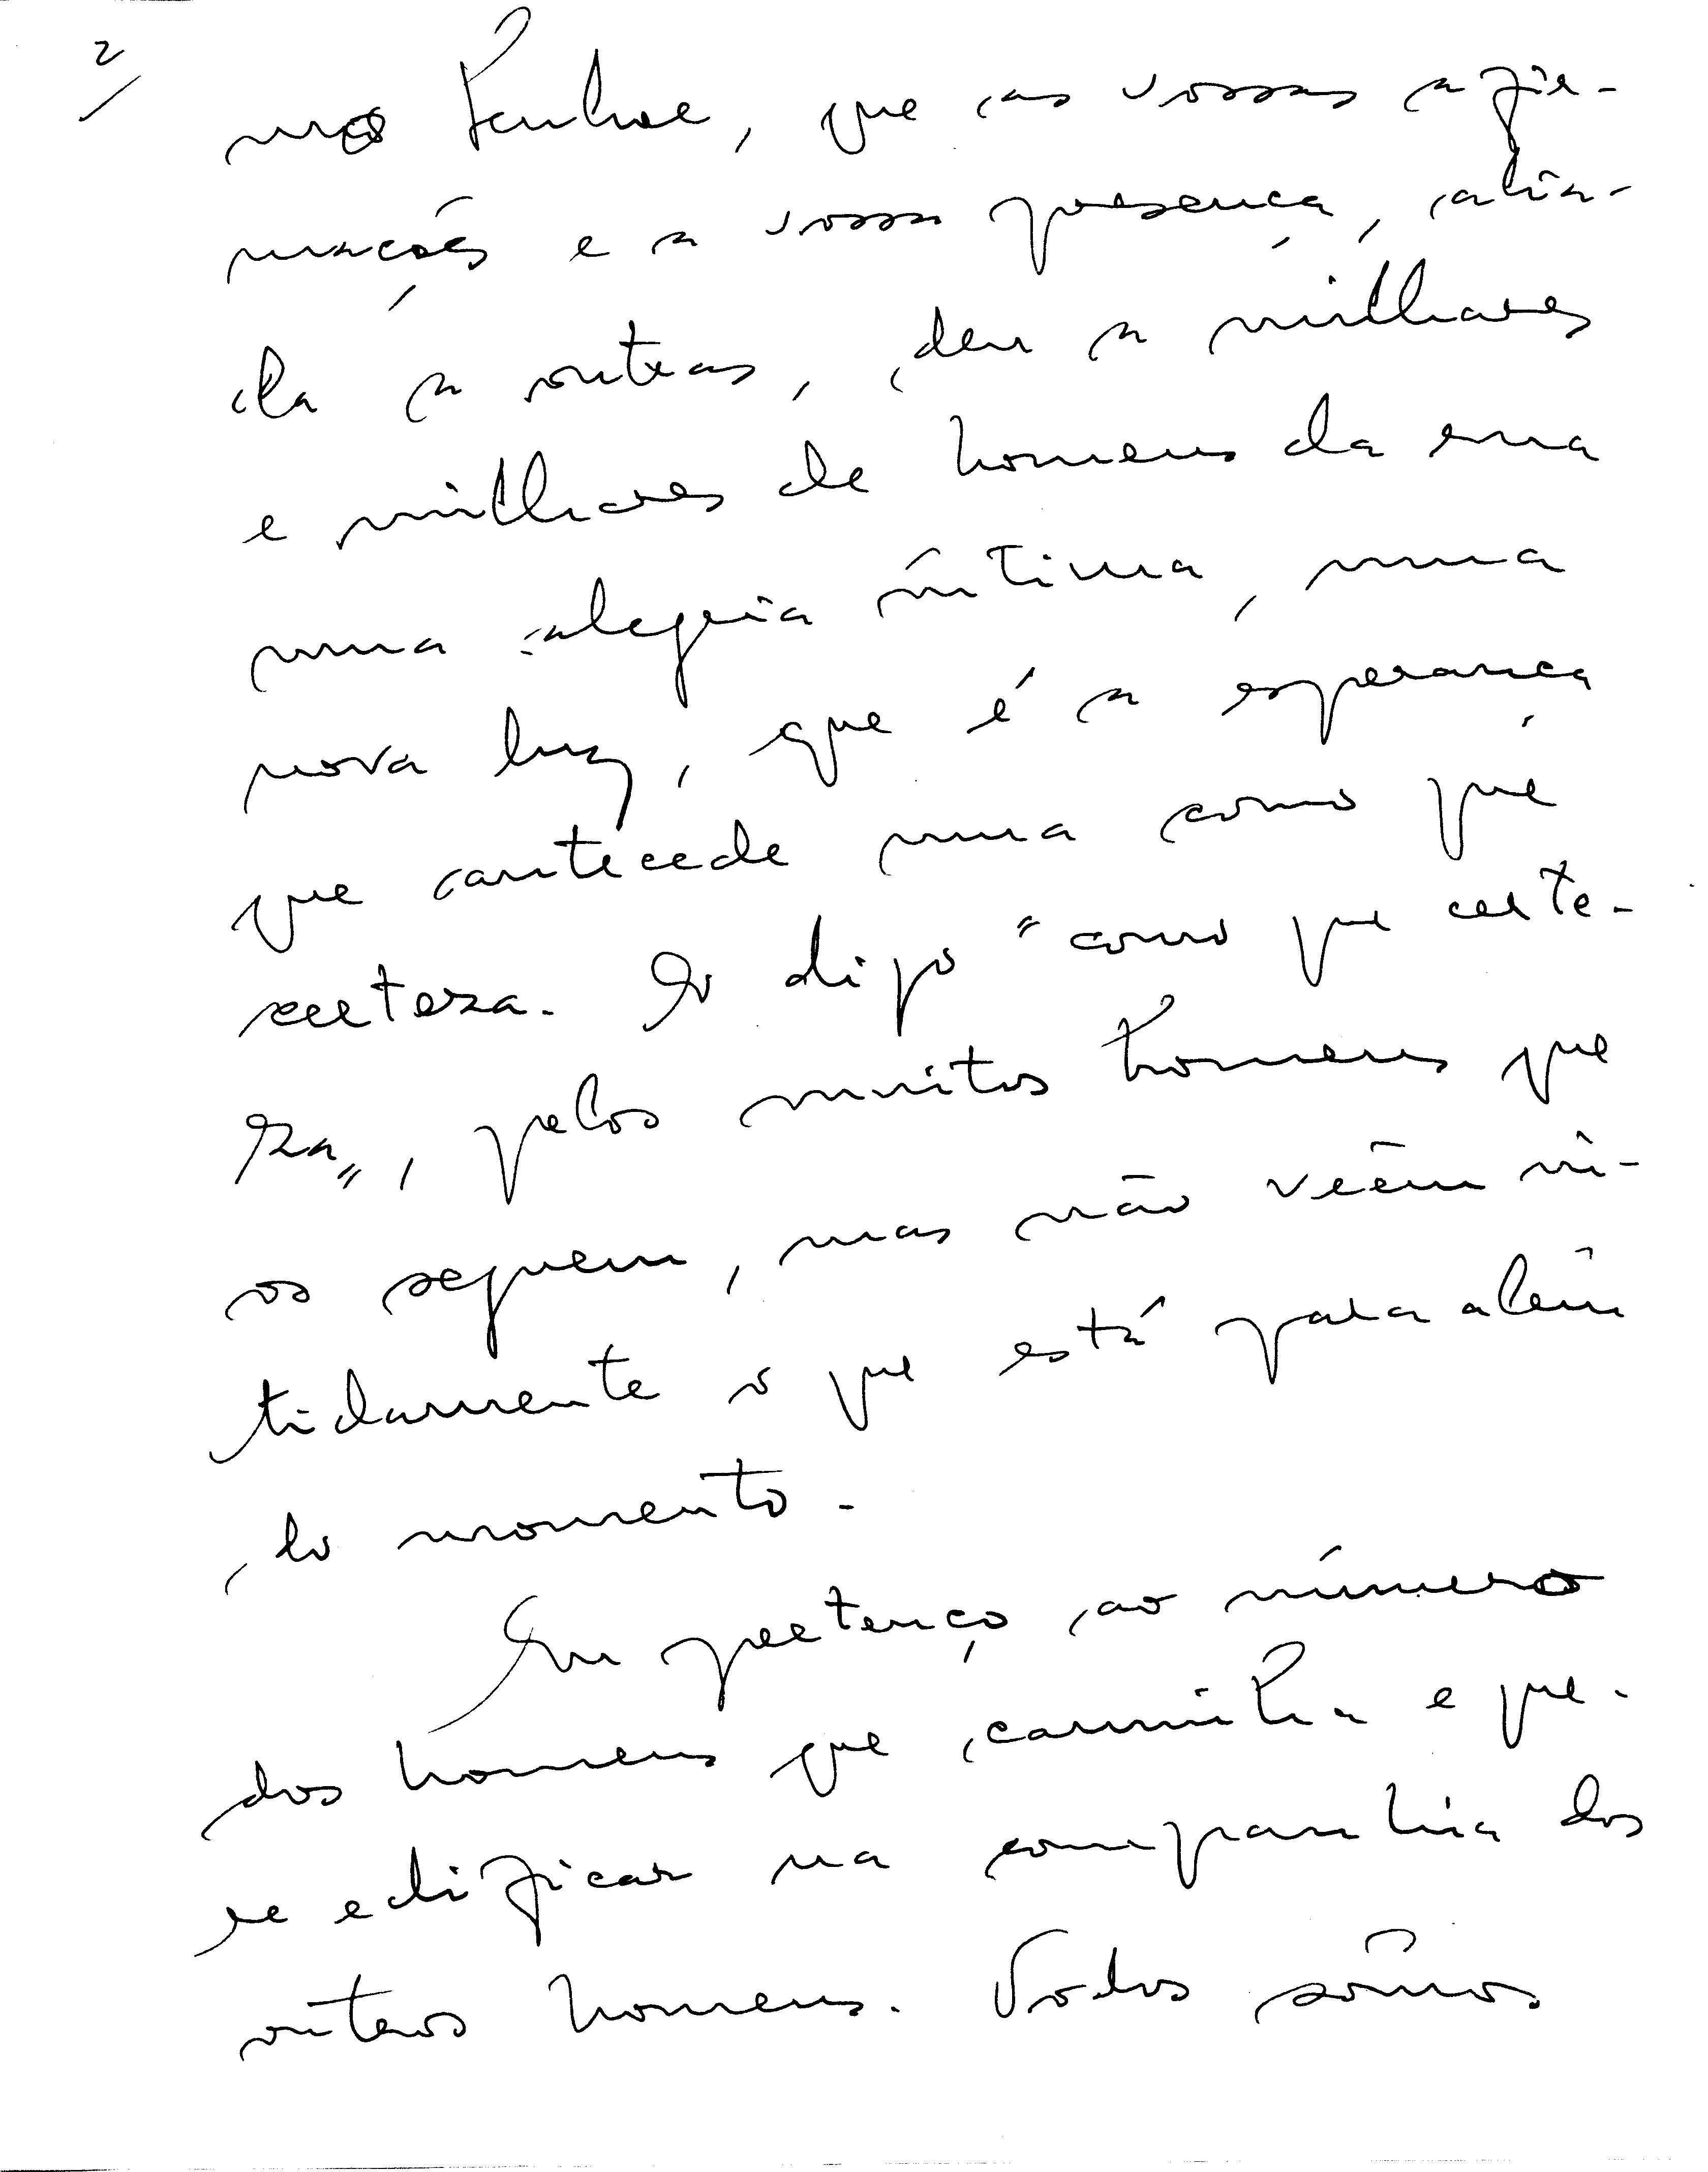 2/
mo Senhor, que as vossas afir-
mações e a vossa presença, alia-
da a outras, deu a milhares
e milhares de homens da rua
uma alegria íntima, uma
nova luz, que é a esperança
que antecede uma como que
certeza. E digo "como que certe-
za", pelos muitos homens que
os seguem, mas não vêem ni-
tidamente o que está para além
do momento.
Eu pertenço ao número
dos homens que caminha e que-
re edificar na companhia dos
outros homens. Todos sômos